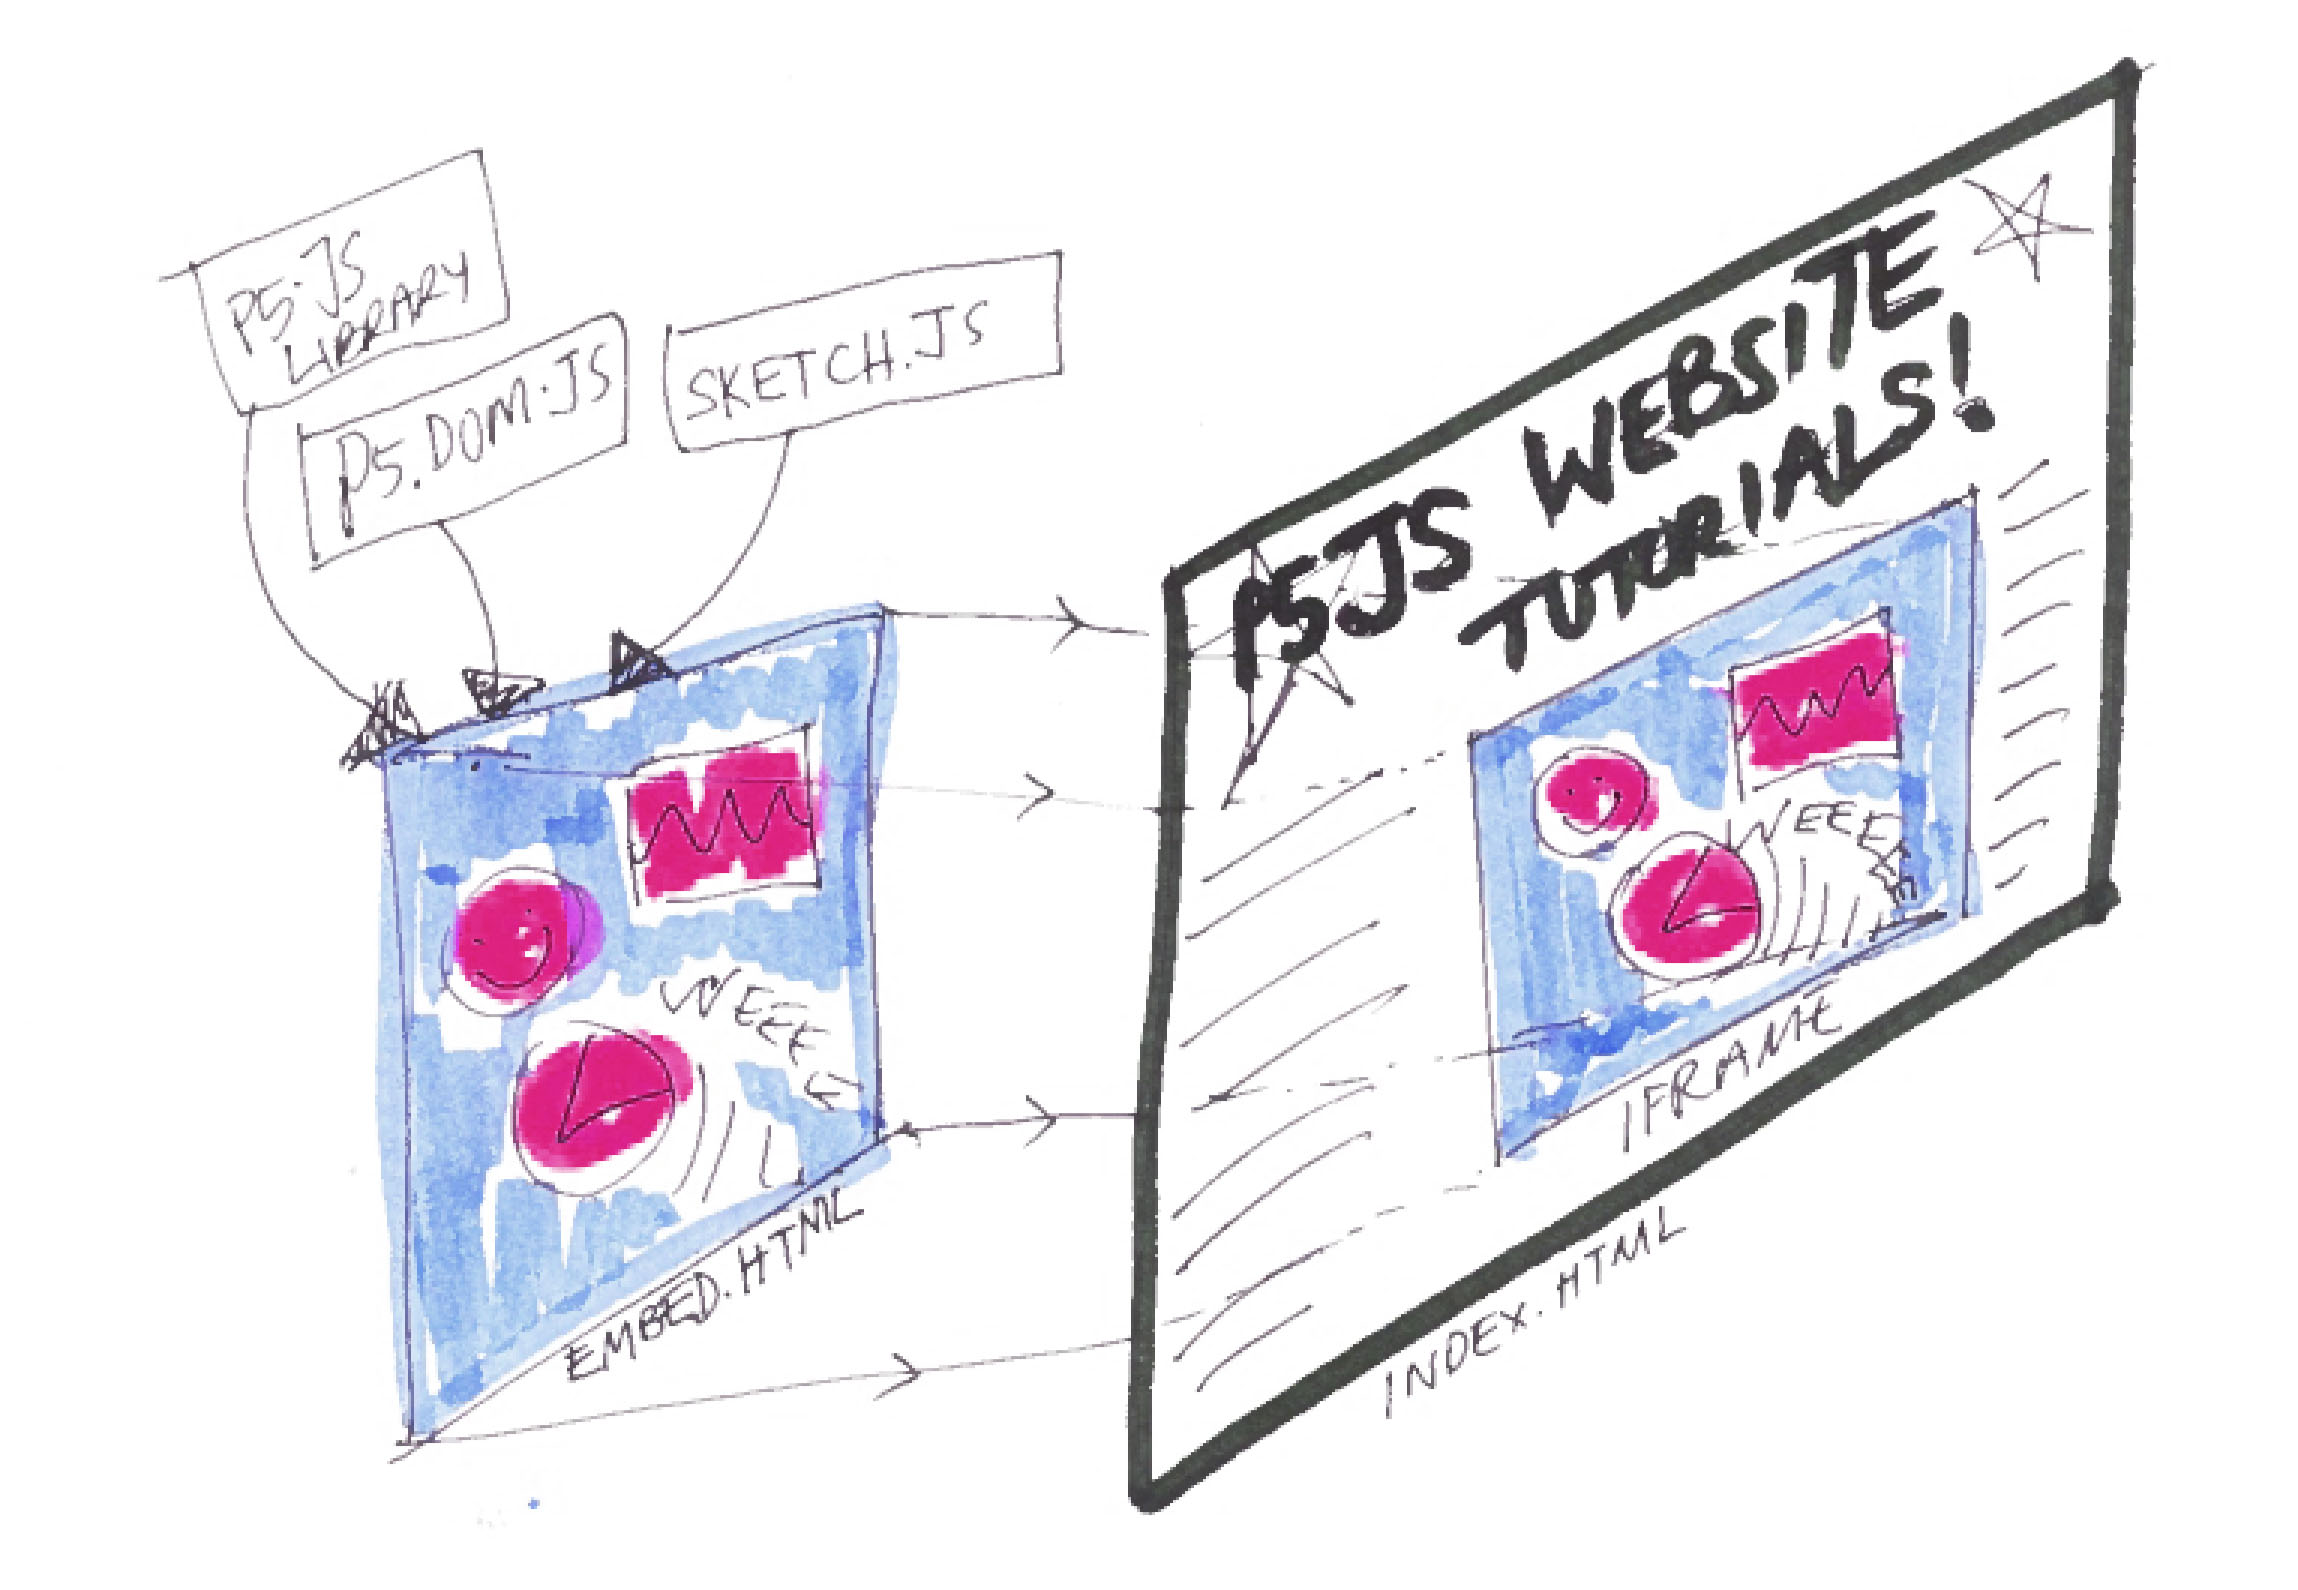 P5.JS
LIBRARY
P5.DOM.JS
SKETCH.JS
WEEEE
EMBED.HTML
P5JS WEBSITE
TUTORIALS!
WEEEEEE
IFRAME
INDEX.HTML